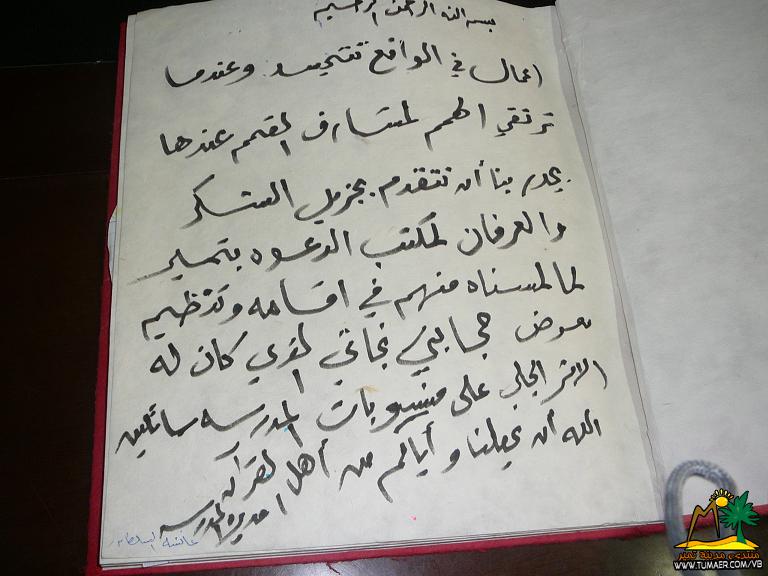 بسم الله الرحمن الرحيم
اعمال في الواقع تتجسد وعندما
ترتقي الهمم لمشارف القمم عندها
يجدر بنا أن نتقدم بجزيل الشكر
والعرفان لمكتب الدعوه بتمير
لما لمسناه منهم في اقامه وتنظيم
معرض حجابي نجاتي الذي كان له
الاثر الجلي على منسوبات المدرسه سائلين
الله أن يجعلنا وأياكم من أهل القرآن
مديرة المدرسه
عائشه السلطان
منتدى مدينة تمير
WWW.TUMAER.COM/VB